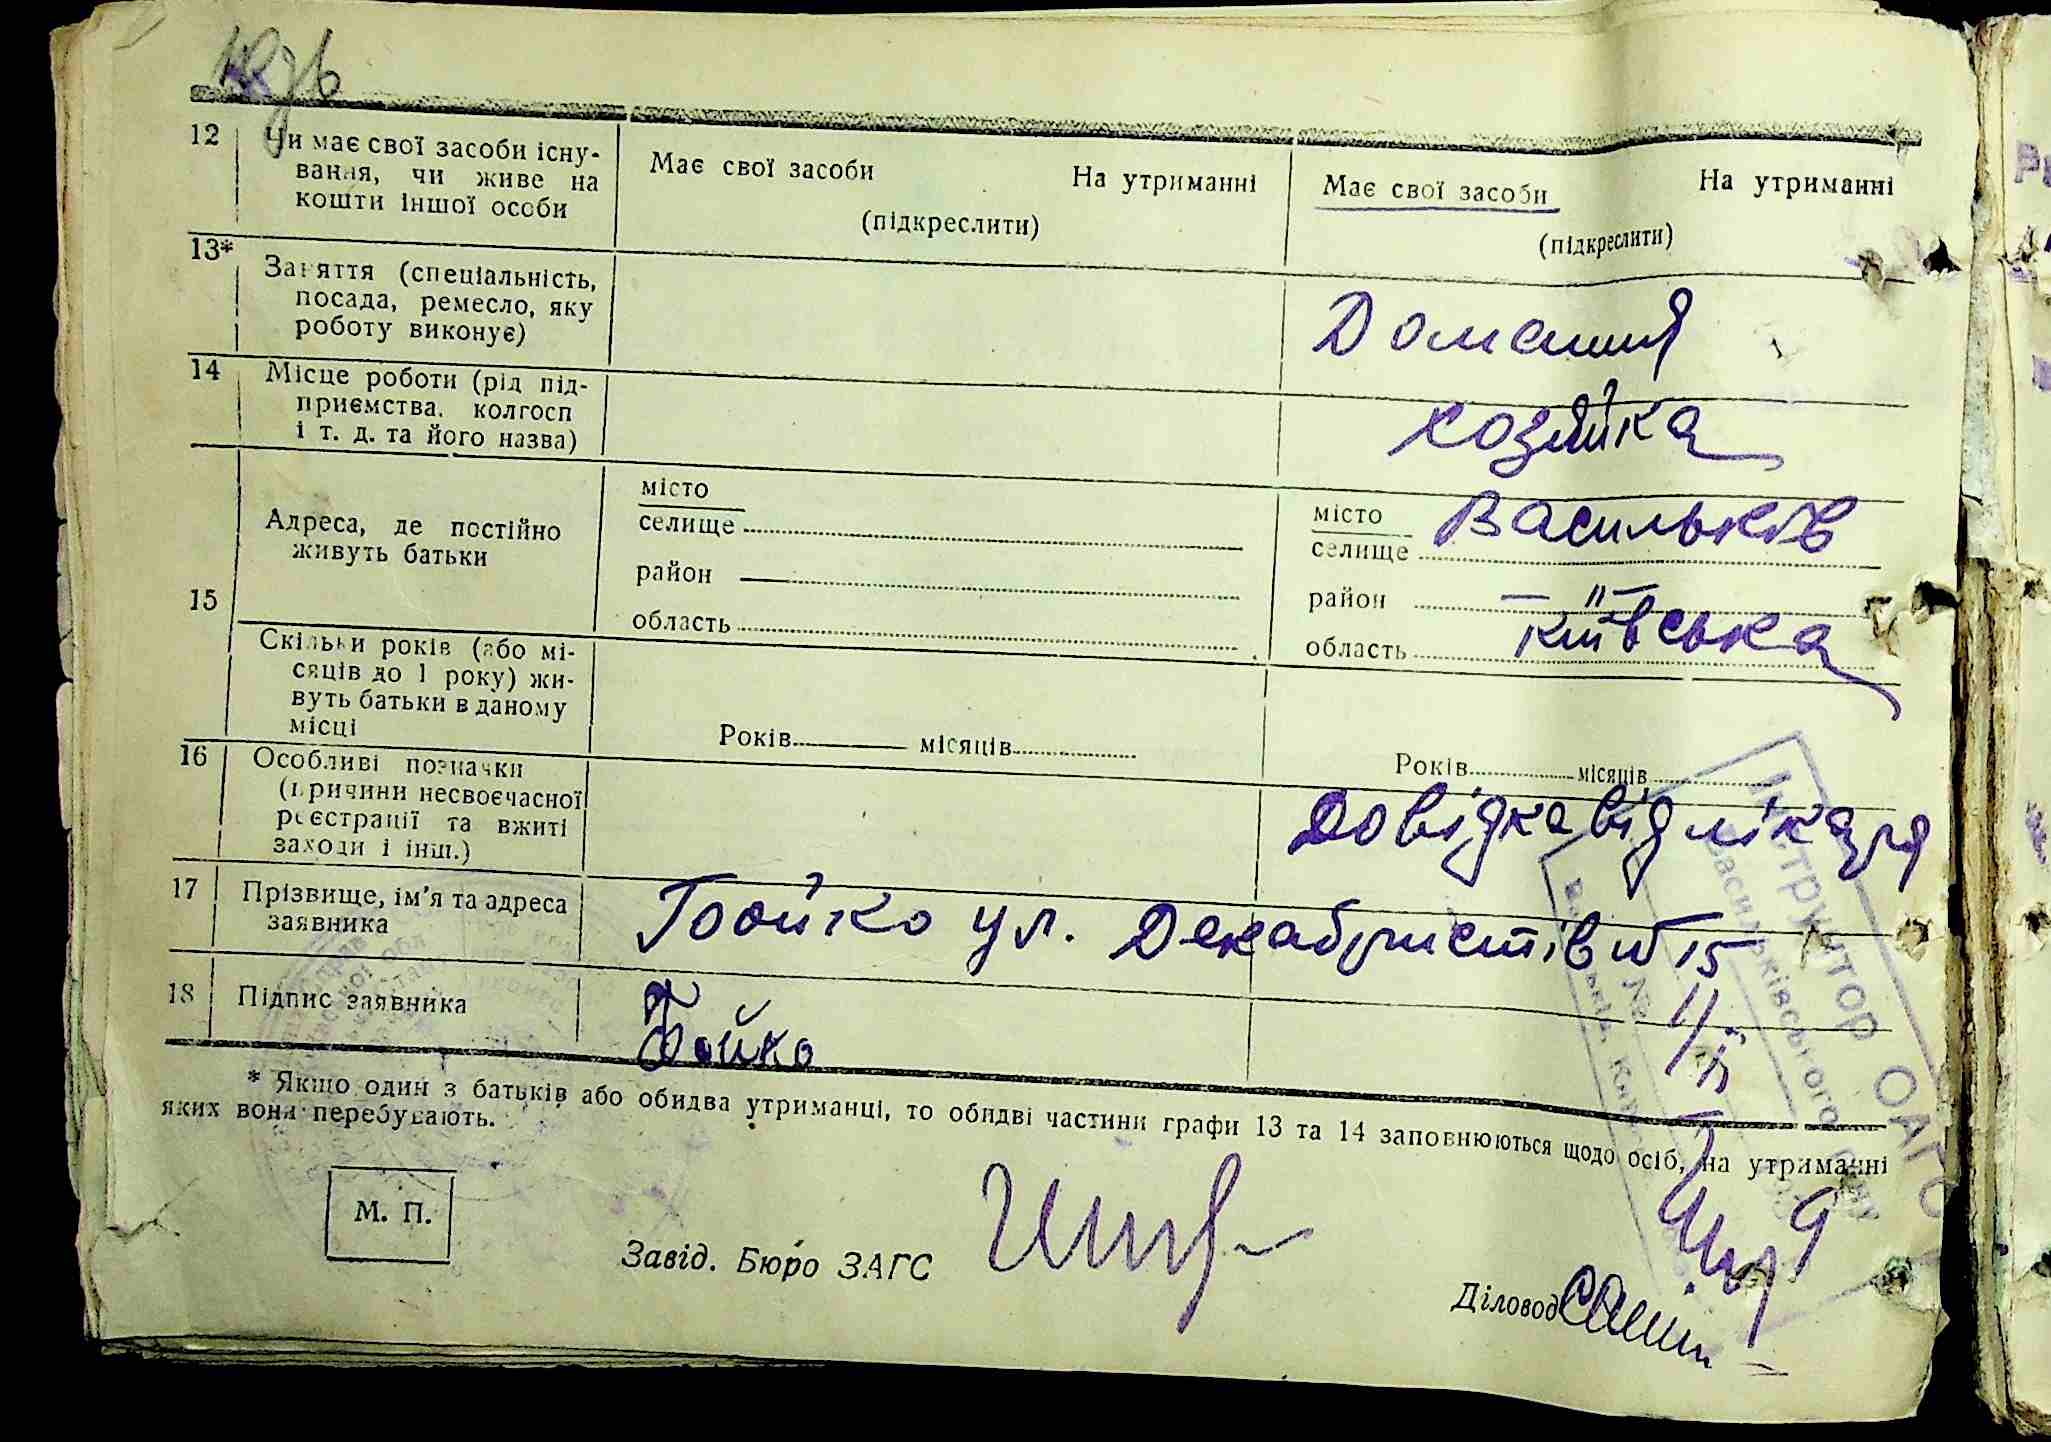 12 Чи має свої засоби існу-
вання, чи живе на
кошти іншої особи
Має свої засоби На утриманні
(підкреслити)
Має свої засоби На утриманні
(підкреслити)
13* Заняття (спеціальність,
посада, ремесло, яку
роботу виконує)
Домашня
14 Місце роботи (рід під-
приємства, колгосп
і т. д. та його назва)
хозяйка
15
Адреса, де постійно
живуть батьки
місто
селище
район
область
місто Васильків
селище
район — " —
область Київська
Скільки років (або мі-
сяців до 1 року) жи-
вуть батьки в даному
місці
Років місяців
Років місяців
16 Особливі позначки
(причини несвоєчасної
реєстрації та вжиті
заходи і інш.)
Довідка від лікаря
17 Прізвище, ім'я та адреса
заявника
Бойко ул. Декабристів № 15
18 Підпис заявника
Бойко
* Якщо один з батьків або обидва утриманці, то обидві частини графи 13 та 14 заповнюються щодо осіб, на утриманні
яких вони перебувають.
М. П.
Завід. Бюро ЗАГС
Діловод
Інструктор ОАГС
Васильківського